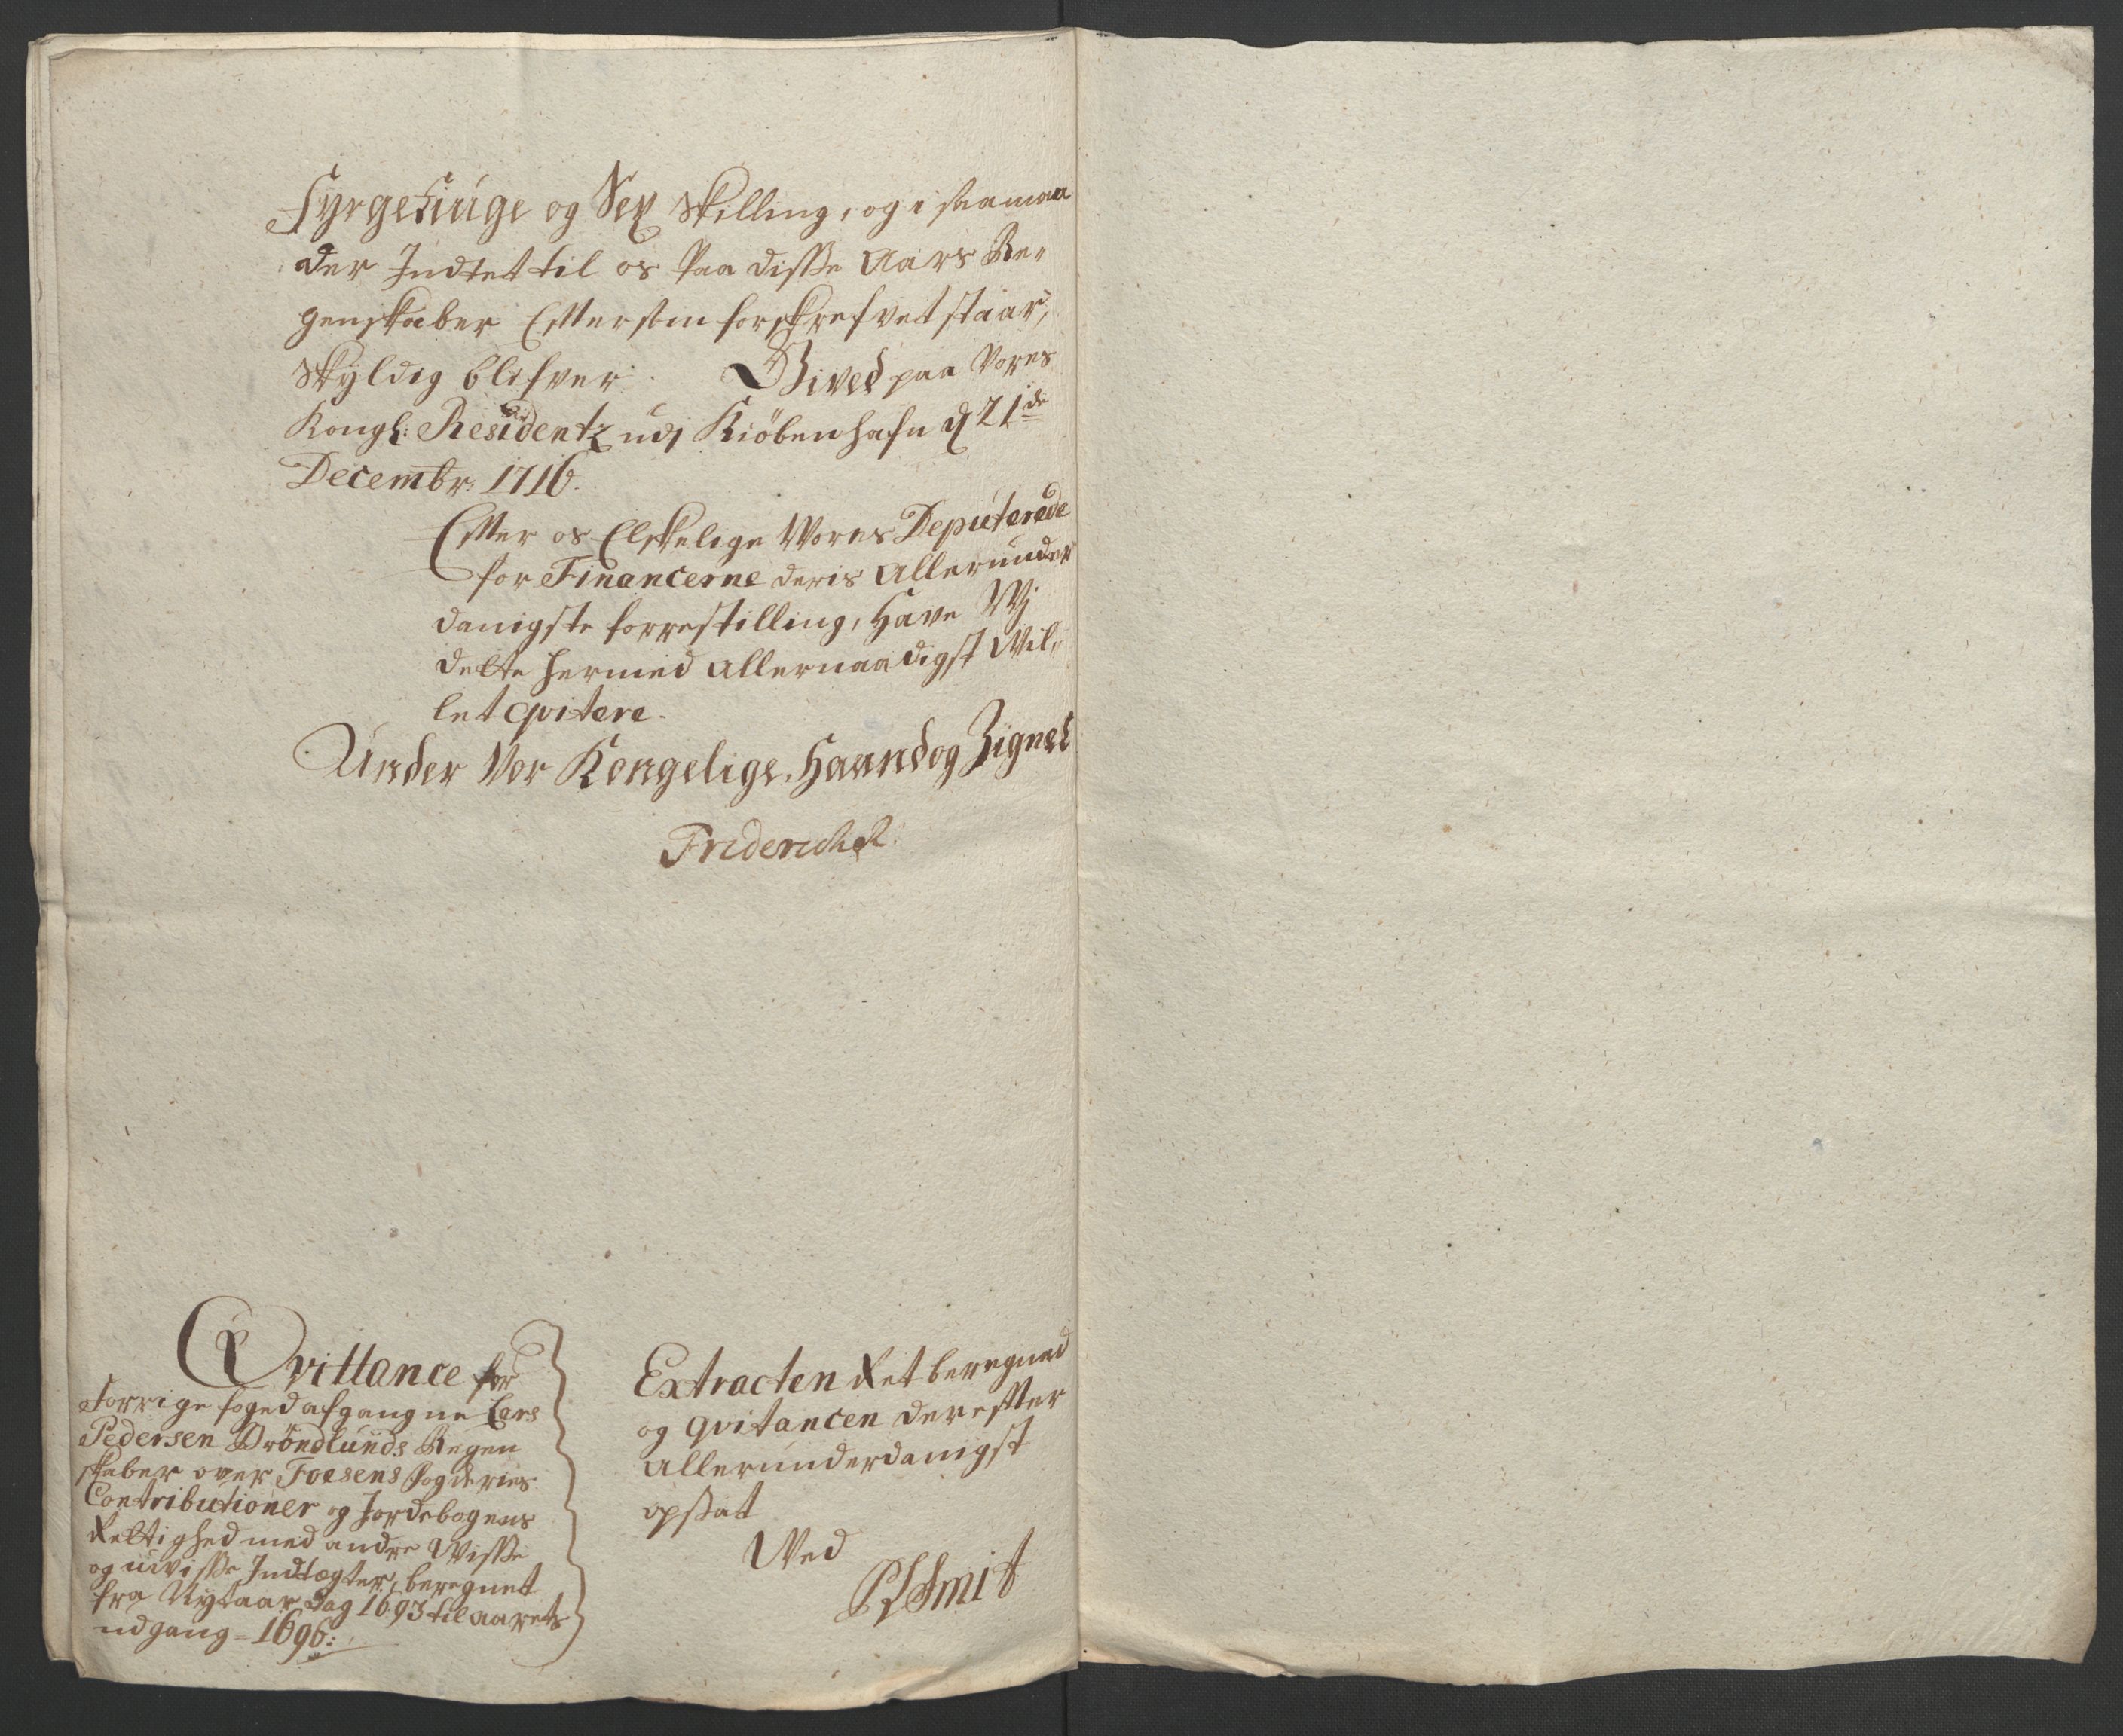 Fyrgetiuge og Sex Skilling, og i saamaa
der Indtet til os Paa disse Aars Re-
genskaber Effter som forskrefvet staar,
Skyldig blifver. Gived paa Vores
Kongl: Residentz udj Kiöbenhafn d 21de
Decembr: 1716.
Effter os Elskelige Vores Deputerede
for Financerne deris Allerunder
danigste forrestilling, Have Wj
dette hermed allernaadigst Vil-
let qvitere.
Under Vor Kongelige Haand og Zignet
Friderich R.
Qvittance for
Forrige foged afgangne Lars
Pedersen Bröndlunds Regen
skaber over Foesens Fogderies
Contributioner og Jordebogens
Rettighed med andre Visse
og uvisse Indtægter, beregnet
fra Nytaars Dag 1693 til aarets
udgang 1696:
Extracten Ret beregned
og qvitancen dereffter
Allerunderdanigst
opsat
Ved
Smit